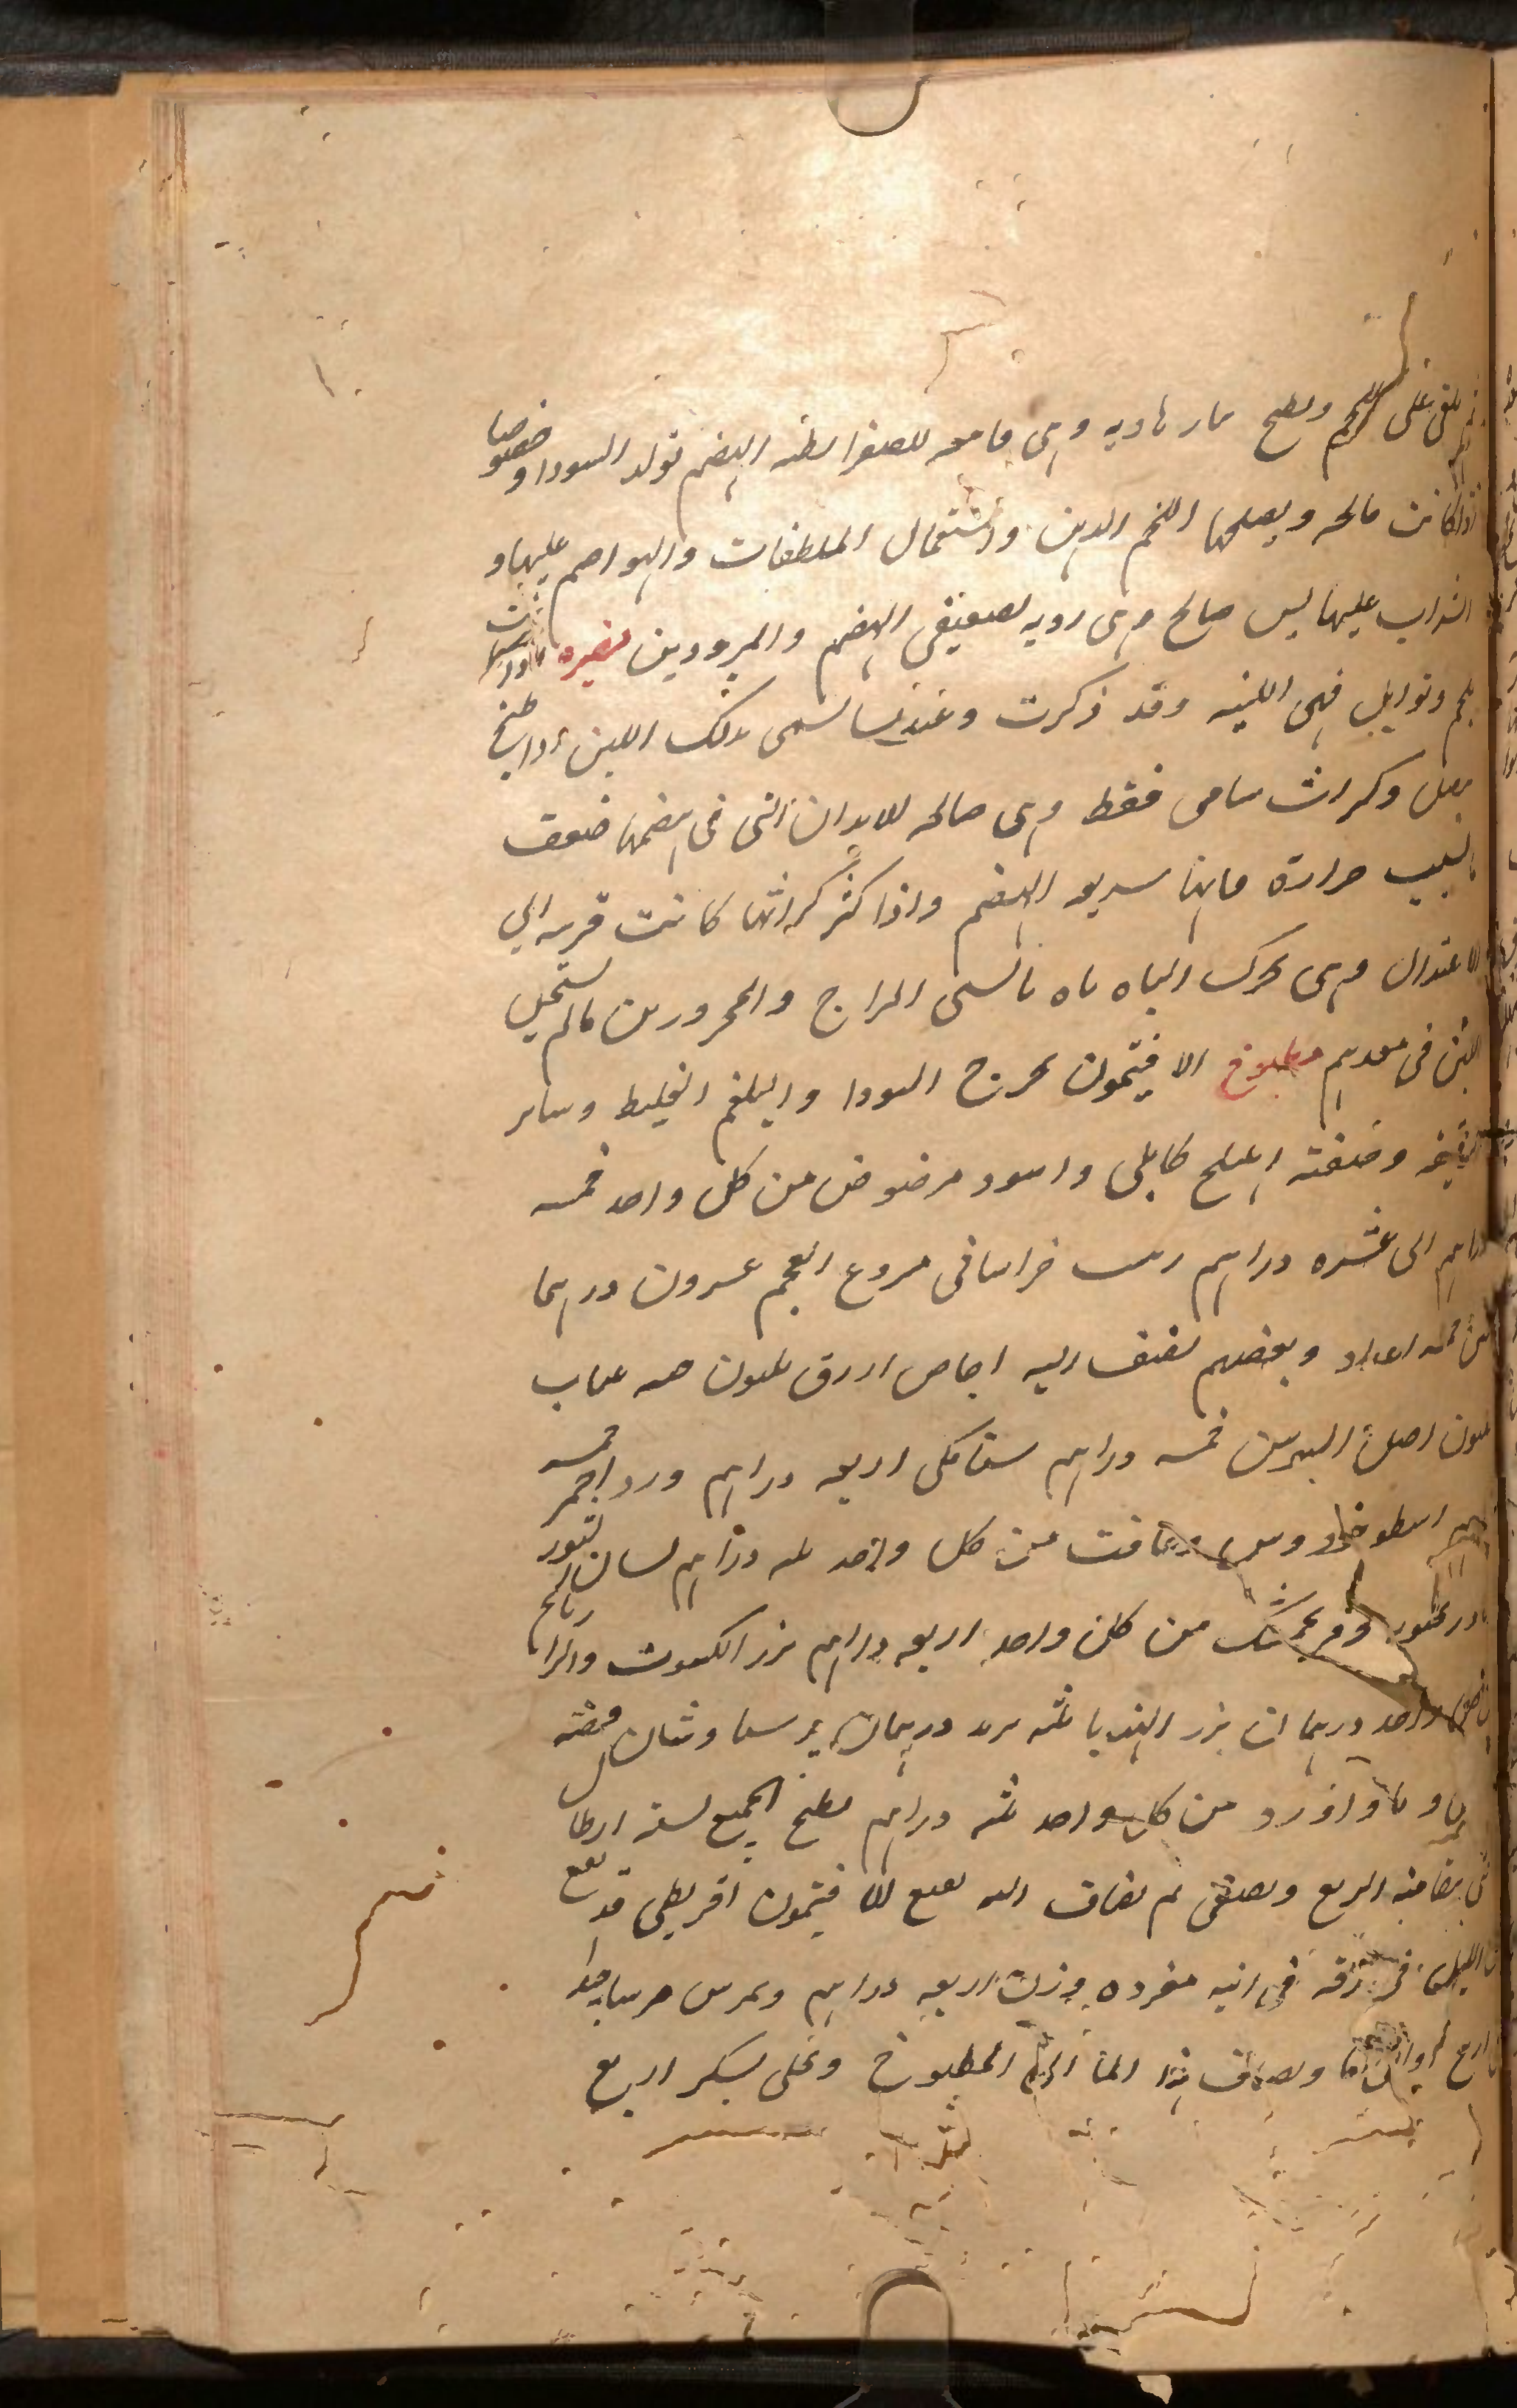 ثم يلقى على اللحم ويطبخ بنار هاديه وهى قامعه للصفرا بطيه الهضم تولد السودا وخصوصا
اذا كانت مالحه ويصلحها اللحم السمين واستعمال الملطفات والهواضم عليها و
الشراب عليها ليس صالح وهى رديه لضعيفى الهضم والمبرودين مضيره اذا
بلحم وتوابل فهى اللبنيه وقد ذكرت وعندنا يسمى بذلك اللبن اذا طبخ
ببصل وكراث شامى فقط وهى صالحه للابدان التى فى هضمها ضعف
بسبب حرارة فانها سريعه الهضم واذا كثر كراثها كانت قريبه الى
الاعتدال وهى تحرك الباه المزاج والمحرورين مالم يستحيل
اللبن فى معدهم مطبوخ الافيتمون يخرج السودا والبلغم الغليظ وساير
وصفته اهليلج كابلى واسود مرضوض من كل واحد خمسه
دراهم الى عشره دراهم زبيب خراسانى منزوع العجم عشرون درهما
تين خمسه اعداد وبعضهم يضيف اليه اجاص ازرق ثلثون حبه عناب
ثلثون اصل السوس خمسه دراهم سنا مكى اربعه دراهم ورد احمر خمسه
دراهم اسطوخودوس وغافت من كل واحد ثلثه دراهم لسان الثور
بادرنجبويه وفرنجمشك من كل واحد اربعه دراهم بزر الكشوت والرازيانج
من كل واحد درهمان بزر الهندبا ثلثه تربد درهمان برسياوشان
وباداورد من كل واحد ثلثه دراهم يطبخ الجميع بستة ارطال
ما الربع ويصفى ثم يضاف اليه نقيع الافيتمون اقريطى قد نقع
من الليل فى خرقه فى انيه مفرده وزن اربعه دراهم ويمرس مرسا جيدا
ويضاف هذا الما الى المطبوخ ويحلى بسكر اربع